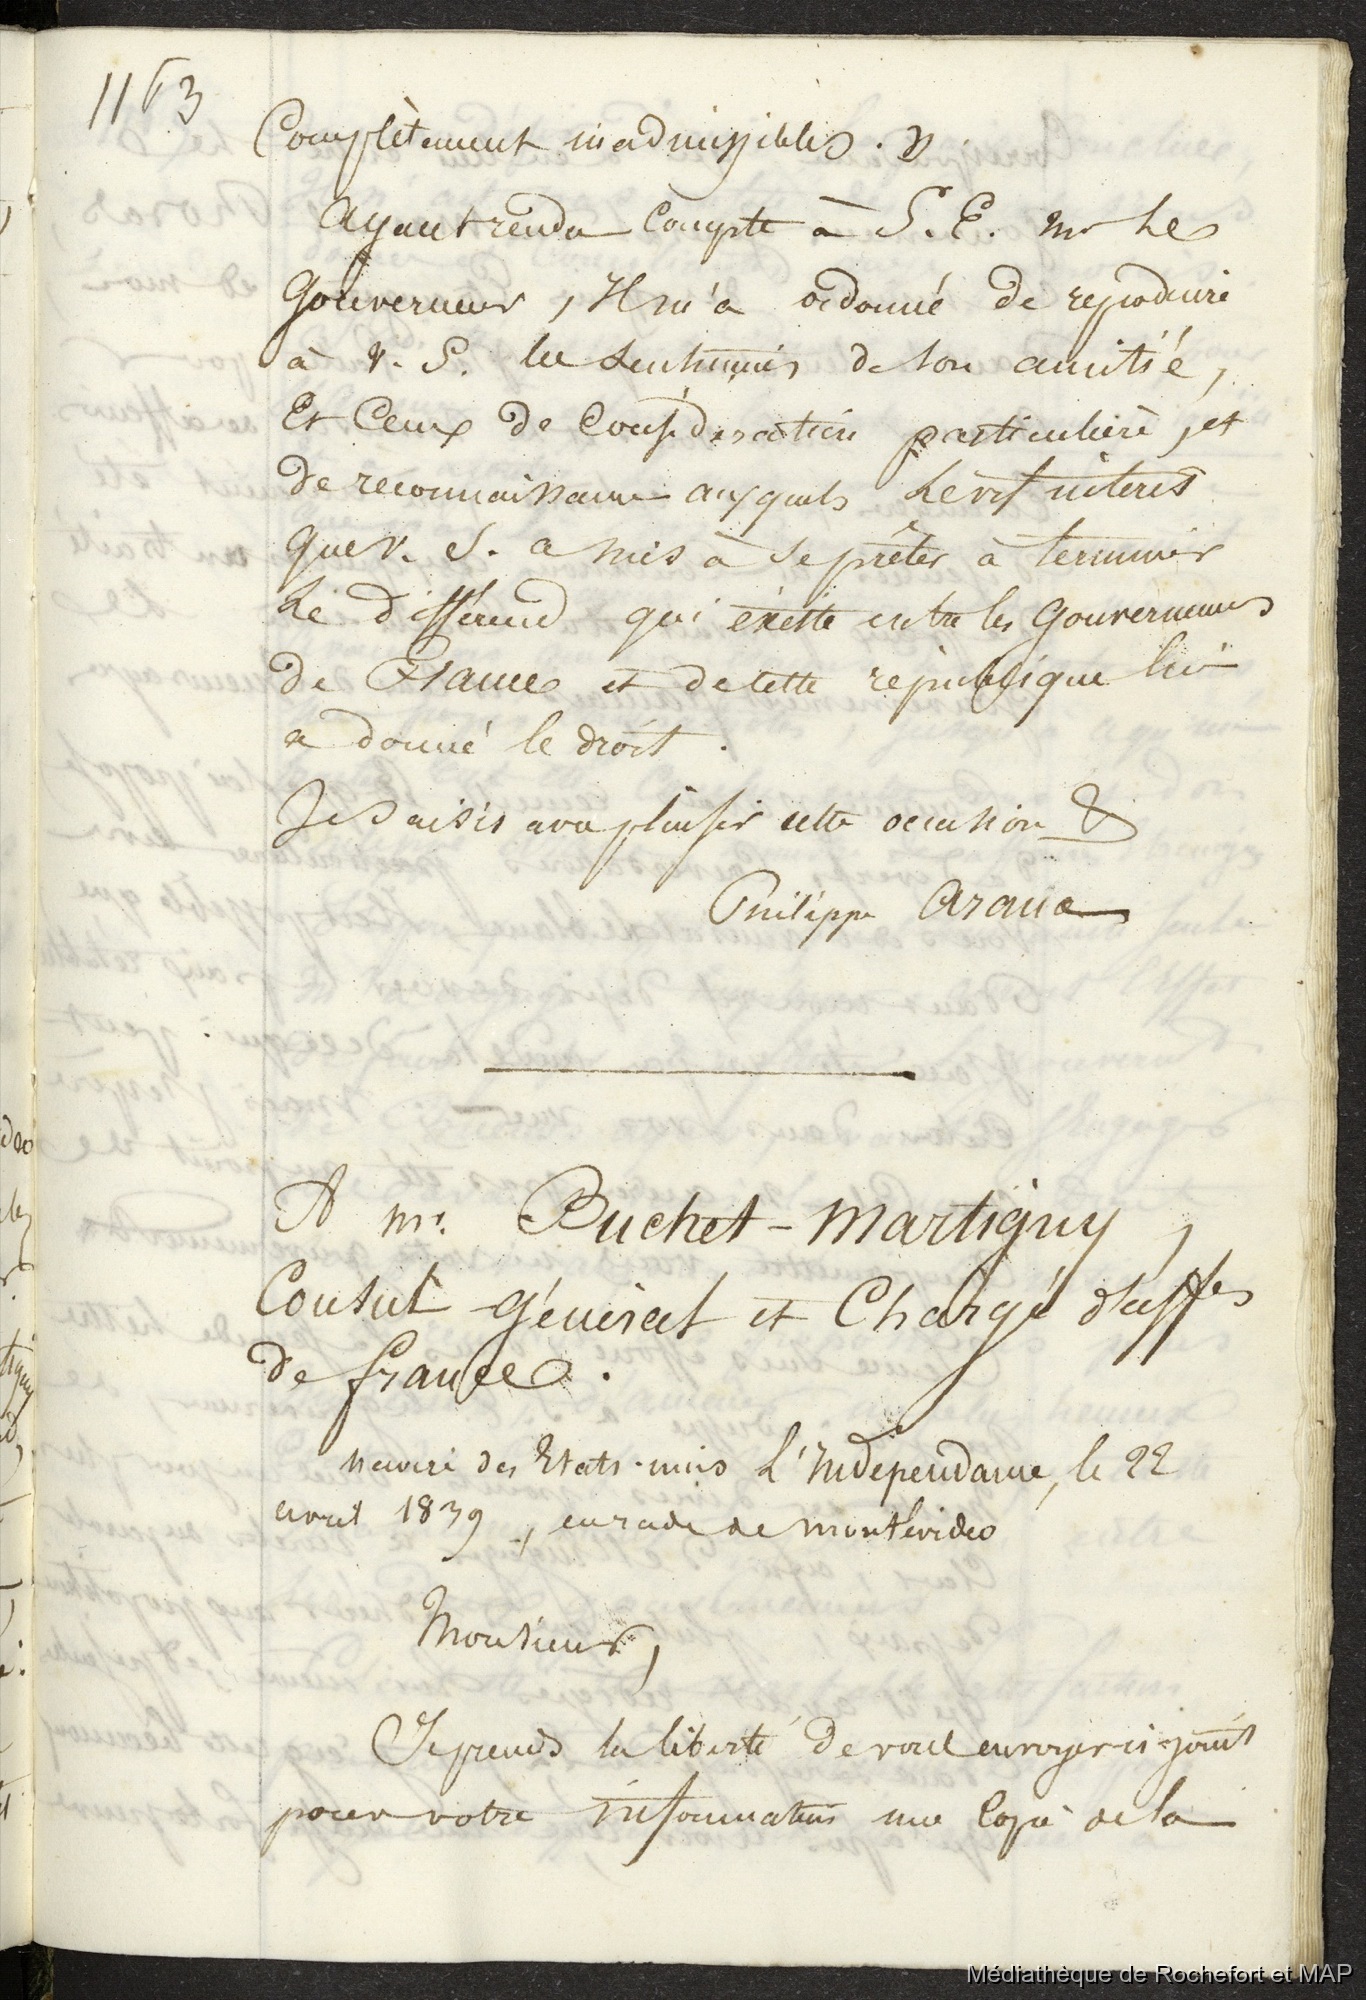 1153
Complètement inadmissibles. »
Ayant rendu Compte à S. E. Mr Le
Gouverneur, Il m'a ordonné de reproduire
à V. S. les sentimens de son amitié,
Et Ceux de Considération particulière, et
de reconnaissance auxquels Le vif intérêt
que V. S. a mis à se prêter à terminer
Le différend qui éxiste entre les Gouvernemens
de France et de cette république lui
a donné le droit.
Je saisis avec plaisir cette occasion &
Philippe Arana
A Mr. Buchet-Martigny,
Consul Général et Chargé d'affes
de france.
navire des Etats-unis L'Indépendance, le 22
avril 1839, en rade de Montévideo
Monsieur,
Je prends la liberté de vous envoyer ci-joint
pour votre information une Copie de la
Médiathèque de Rochefort et MAP